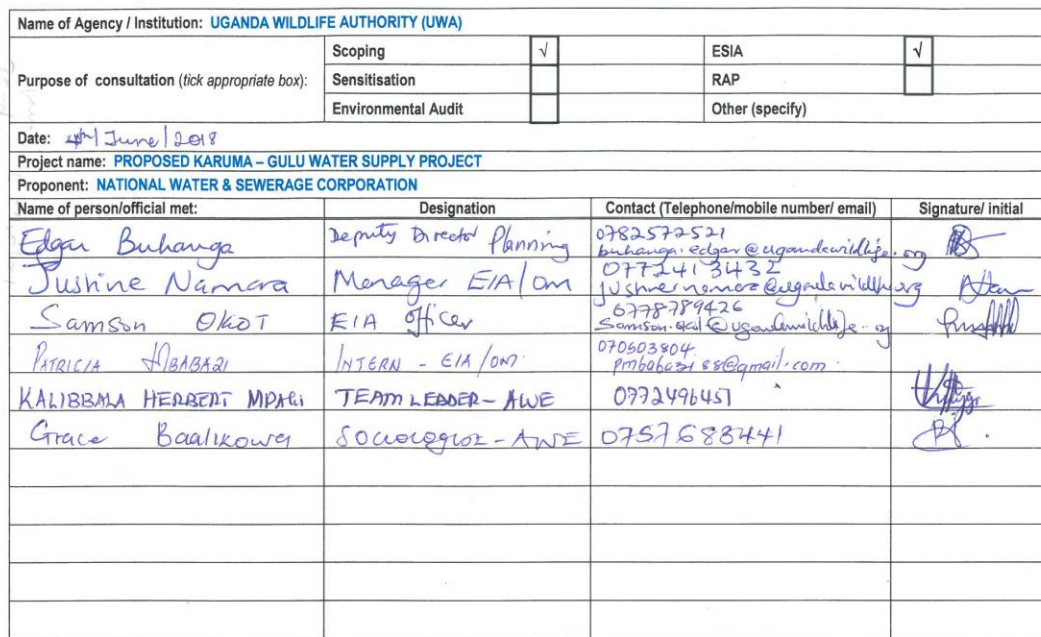 Name of Agency / Institution: UGANDA WILDLIFE AUTHORITY (UWA)
Purpose of consultation (tick appropriate box):
Scoping √ ESIA √
Sensitisation RAP
Environmental Audit Other (specify)
Date: 4th June/2018
Project name: PROPOSED KARUMA – GULU WATER SUPPLY PROJECT
Proponent: NATIONAL WATER & SEWERAGE CORPORATION
Name of person/official met: Designation Contact (Telephone/mobile number/ email) Signature/ initial
Edgar Buhanga Deputy Director Planning 0782572521
buhanga.edgar@ugandawildlife.org
Justine Namara Manager EIA/OM 0772413432
Samson OKOT EIA Officer 0778789426
PATRICIA INTERN - EIA/OM 070503804
KALIBBALA HERBERT TEAM LEADER - AWE 0772496451
Grace Baalikowa - AWE 0757688441